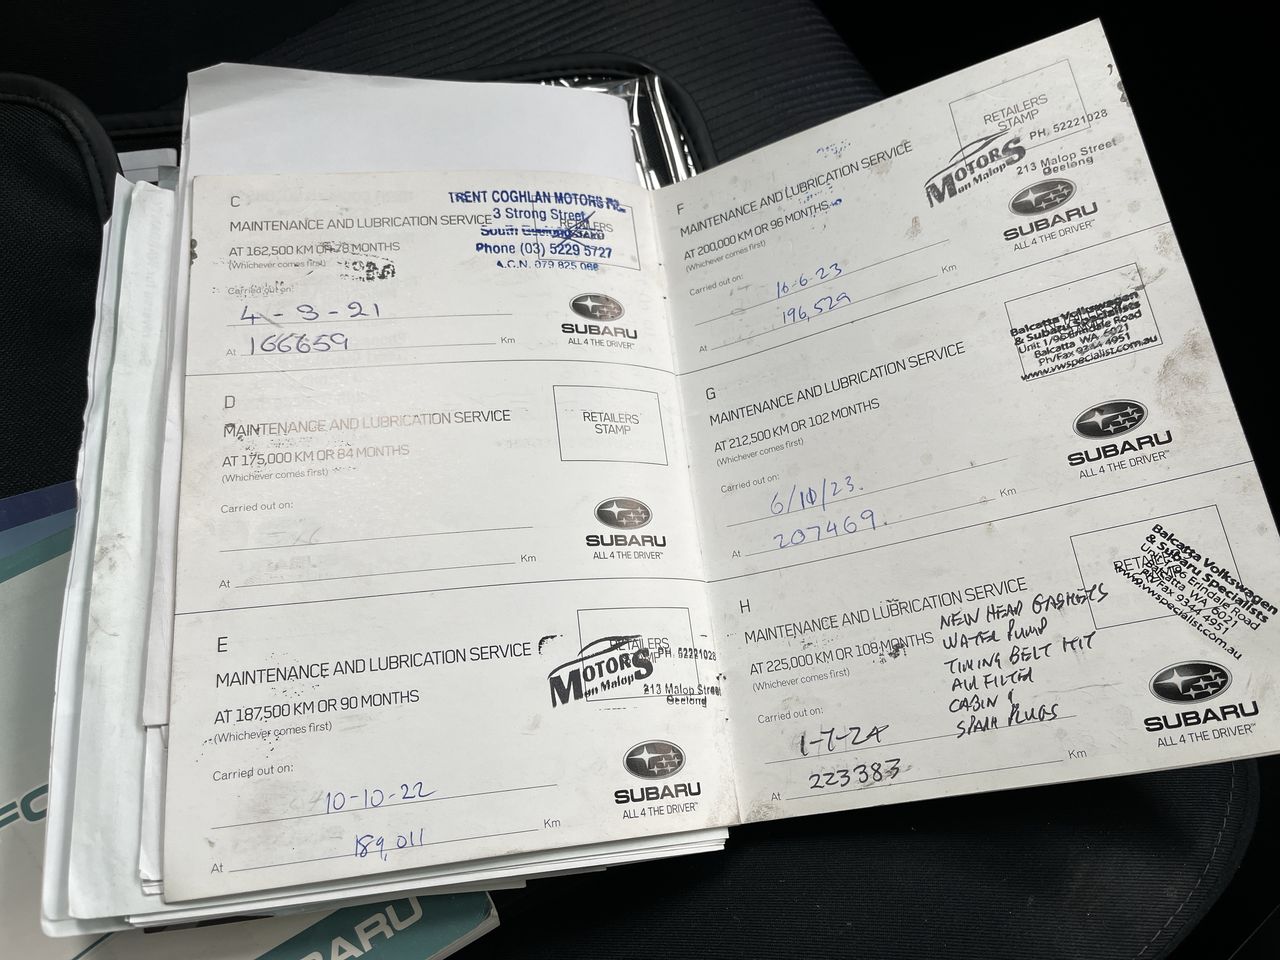 C
TRENT COGHLAN MOTORS P/L
3 Strong Street
South Geelong 3220
Phone (03) 5229 5727
A.C.N. 079 825 066
RETAILERS
MAINTENANCE AND LUBRICATION SERVICE
AT 162,500 KM OR 78 MONTHS
(Whichever comes first)
Carried out on:
4-3-21
At 166659 Km
SUBARU
ALL 4 THE DRIVER™
D
MAINTENANCE AND LUBRICATION SERVICE
AT 175,000 KM OR 84 MONTHS
(Whichever comes first)
RETAILERS
STAMP
Carried out on:
At Km
SUBARU
ALL 4 THE DRIVER™
E
MAINTENANCE AND LUBRICATION SERVICE
AT 187,500 KM OR 90 MONTHS
(Whichever comes first)
RETAILERS
STAMP
MOTORS
on Malop
PH. 52221028
213 Malop Street
Geelong
Carried out on:
10-10-22
At 189,011 Km
SUBARU
ALL 4 THE DRIVER™
F
MAINTENANCE AND LUBRICATION SERVICE
AT 200,000 KM OR 96 MONTHS
(Whichever comes first)
RETAILERS
STAMP
MOTORS
on Malop
PH. 52221028
213 Malop Street
Geelong
Carried out on:
16-6-23
At 196,529 Km
SUBARU
ALL 4 THE DRIVER™
G
MAINTENANCE AND LUBRICATION SERVICE
AT 212,500 KM OR 102 MONTHS
(Whichever comes first)
Balcatta Volkswagen
& Subaru Specialists
Unit 1/96 Erindale Road
Balcatta WA 6021
Ph/Fax 9344 4951
www.vwspecialist.com.au
Carried out on:
6/10/23.
At 207469. Km
SUBARU
ALL 4 THE DRIVER™
H
MAINTENANCE AND LUBRICATION SERVICE
AT 225,000 KM OR 108 MONTHS
(Whichever comes first)
RETAILERS
Balcatta Volkswagen
& Subaru Specialists
Unit 1/96 Erindale Road
Balcatta WA 6021
Ph/Fax 9344 4951
www.vwspecialist.com.au
NEW HEAD GASKETS
WATER PUMP
TIMING BELT KIT
AIR FILTER
CABIN &
SPARK PLUGS
Carried out on:
1-7-24
At 223383 Km
SUBARU
ALL 4 THE DRIVER™